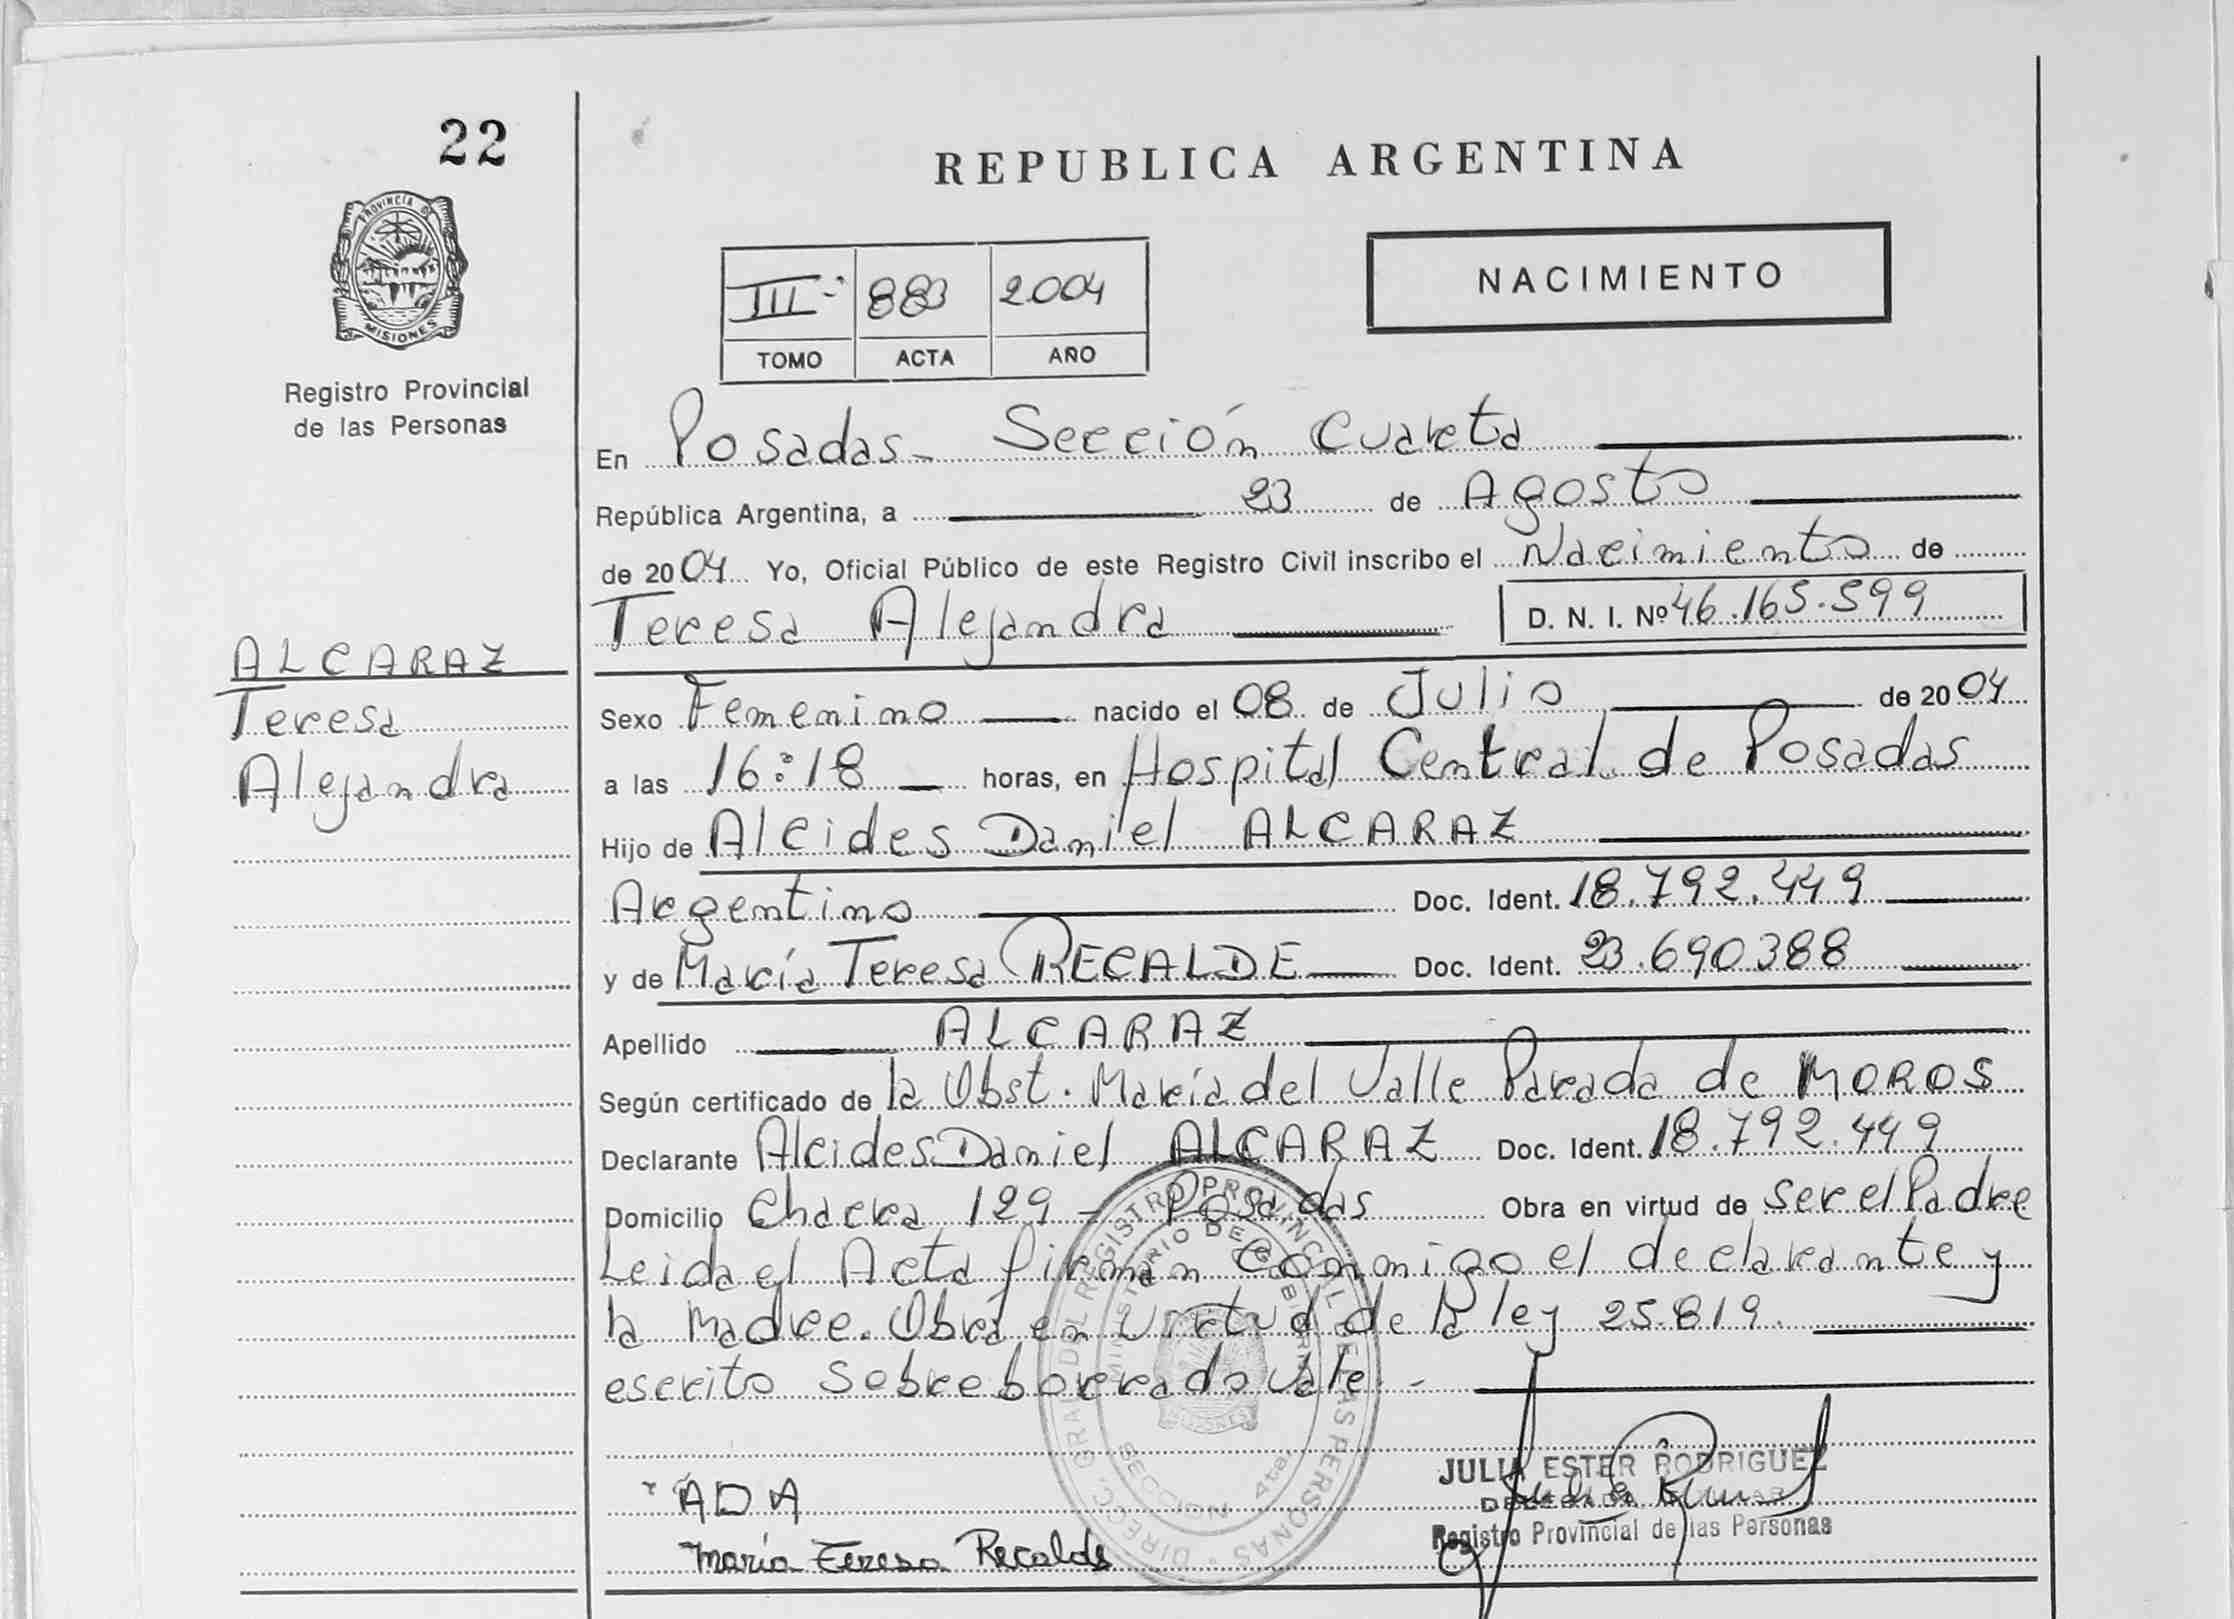 22
REPUBLICA ARGENTINA
PROVINCIA DE
MISIONES
Registro Provincial
de las Personas
NACIMIENTO
III - 883 2004
TOMO ACTA AÑO
En Posadas - Sección Cuarta
República Argentina, a 23 de Agosto
de 2004 Yo, Oficial Público de este Registro Civil inscribo el Nacimiento de
Teresa Alejandra D. N. I. Nº 46.165.599
ALCARAZ
Teresa
Alejandra
Sexo Femenino nacido el 08 de Julio de 2004
a las 16:18 horas, en Hospital Central de Posadas
Hijo de Alcides Daniel ALCARAZ
Argentino Doc. Ident. 18.792.449
y de María Teresa RECALDE Doc. Ident. 23.690388
Apellido ALCARAZ
Según certificado de la Obst. María del Valle Parada de MOROS
Declarante Alcides Daniel ALCARAZ Doc. Ident. 18.792.449
Domicilio Chacra 129 - Posadas Obra en virtud de ser el Padre
Leida el Acta firman conmigo el declarante y
la madre. Obra en virtud de la ley 25.819.
escrito sobreborrado vale. -
DIRECC. GRAL. DEL REGISTRO PROVINCIAL DE LAS PERSONAS
MINISTERIO DE GOBIERNO
MISIONES
SECCION 4ta.
ADA
María Teresa Recalde
JULIA ESTER RODRIGUEZ
Registro Provincial de las Personas